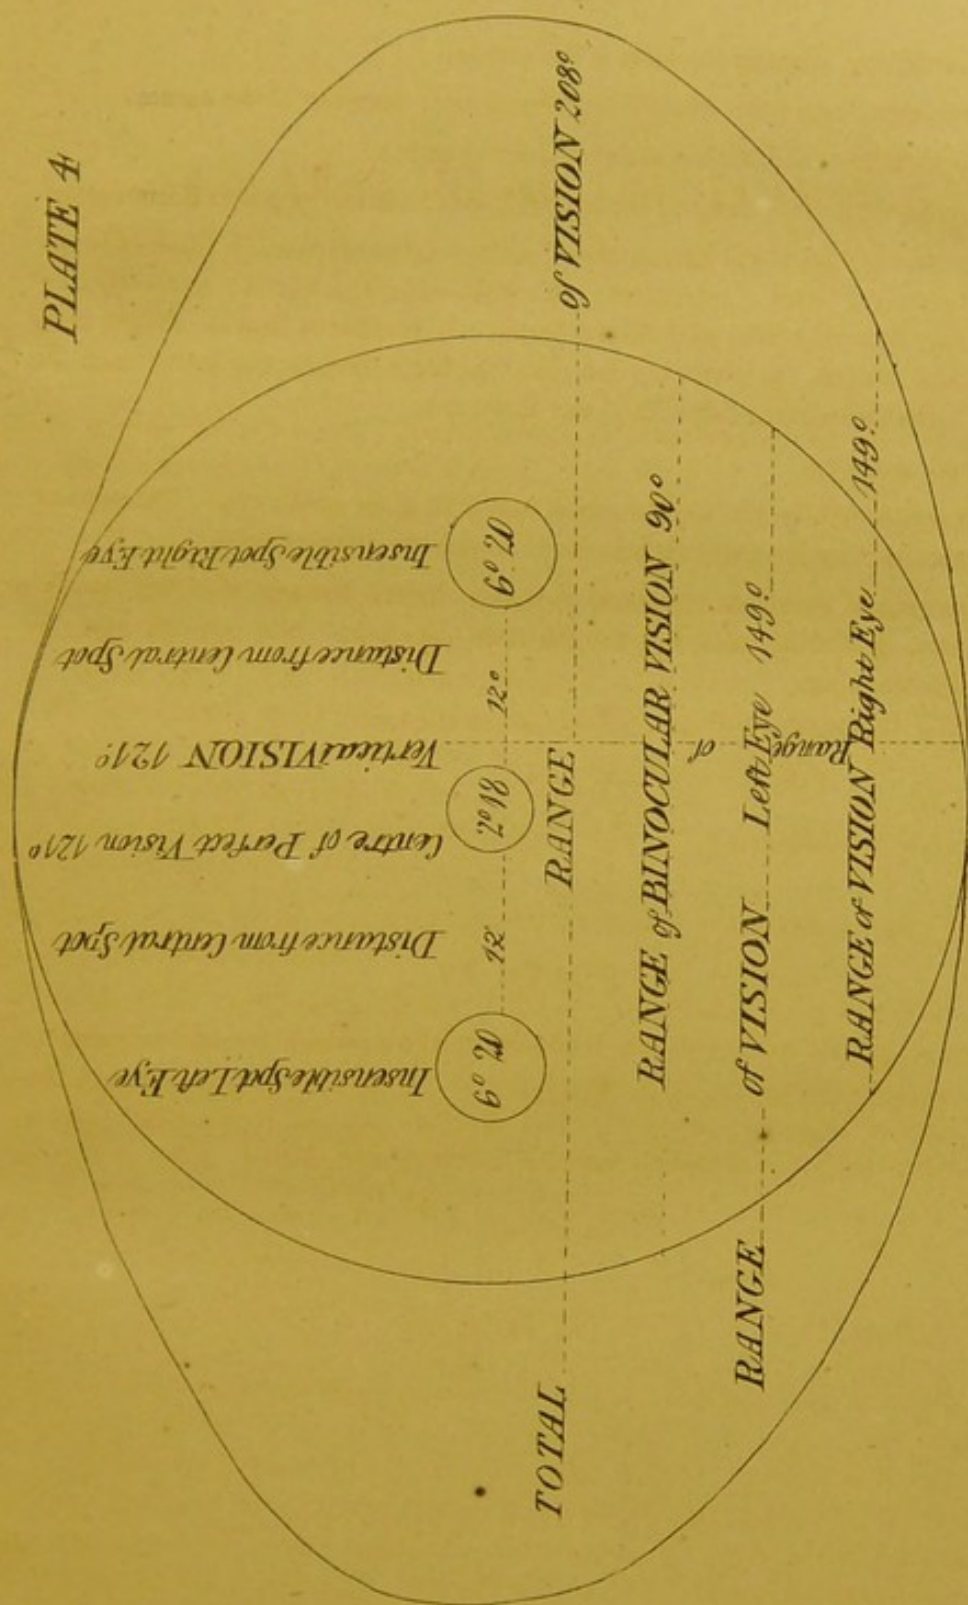 PLATE 4
Insensible Spot Left Eye
Distance from Central Spot
Centre of Perfect Vision 121°
Vertical VISION 121°
Distance from Central Spot
Insensible Spot Right Eye
6° 20
12
2° 18
12°
6° 20
TOTAL RANGE of VISION 208°
RANGE of BINOCULAR VISION 90°
Range of
RANGE of VISION Left Eye 149°
RANGE of VISION Right Eye 149°